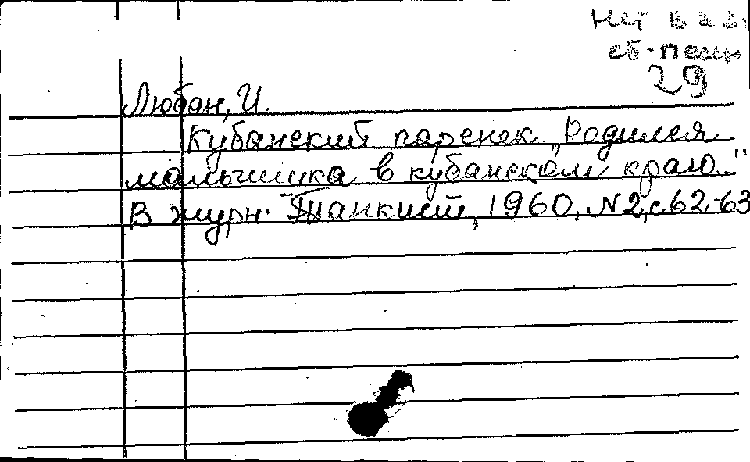 Нет в
сб. песен
29
Любан, И.
Кубанский паренек „Родился
мальчишка в кубанском краю..."
В журн. Танкист, 1960, №2, с.62-63